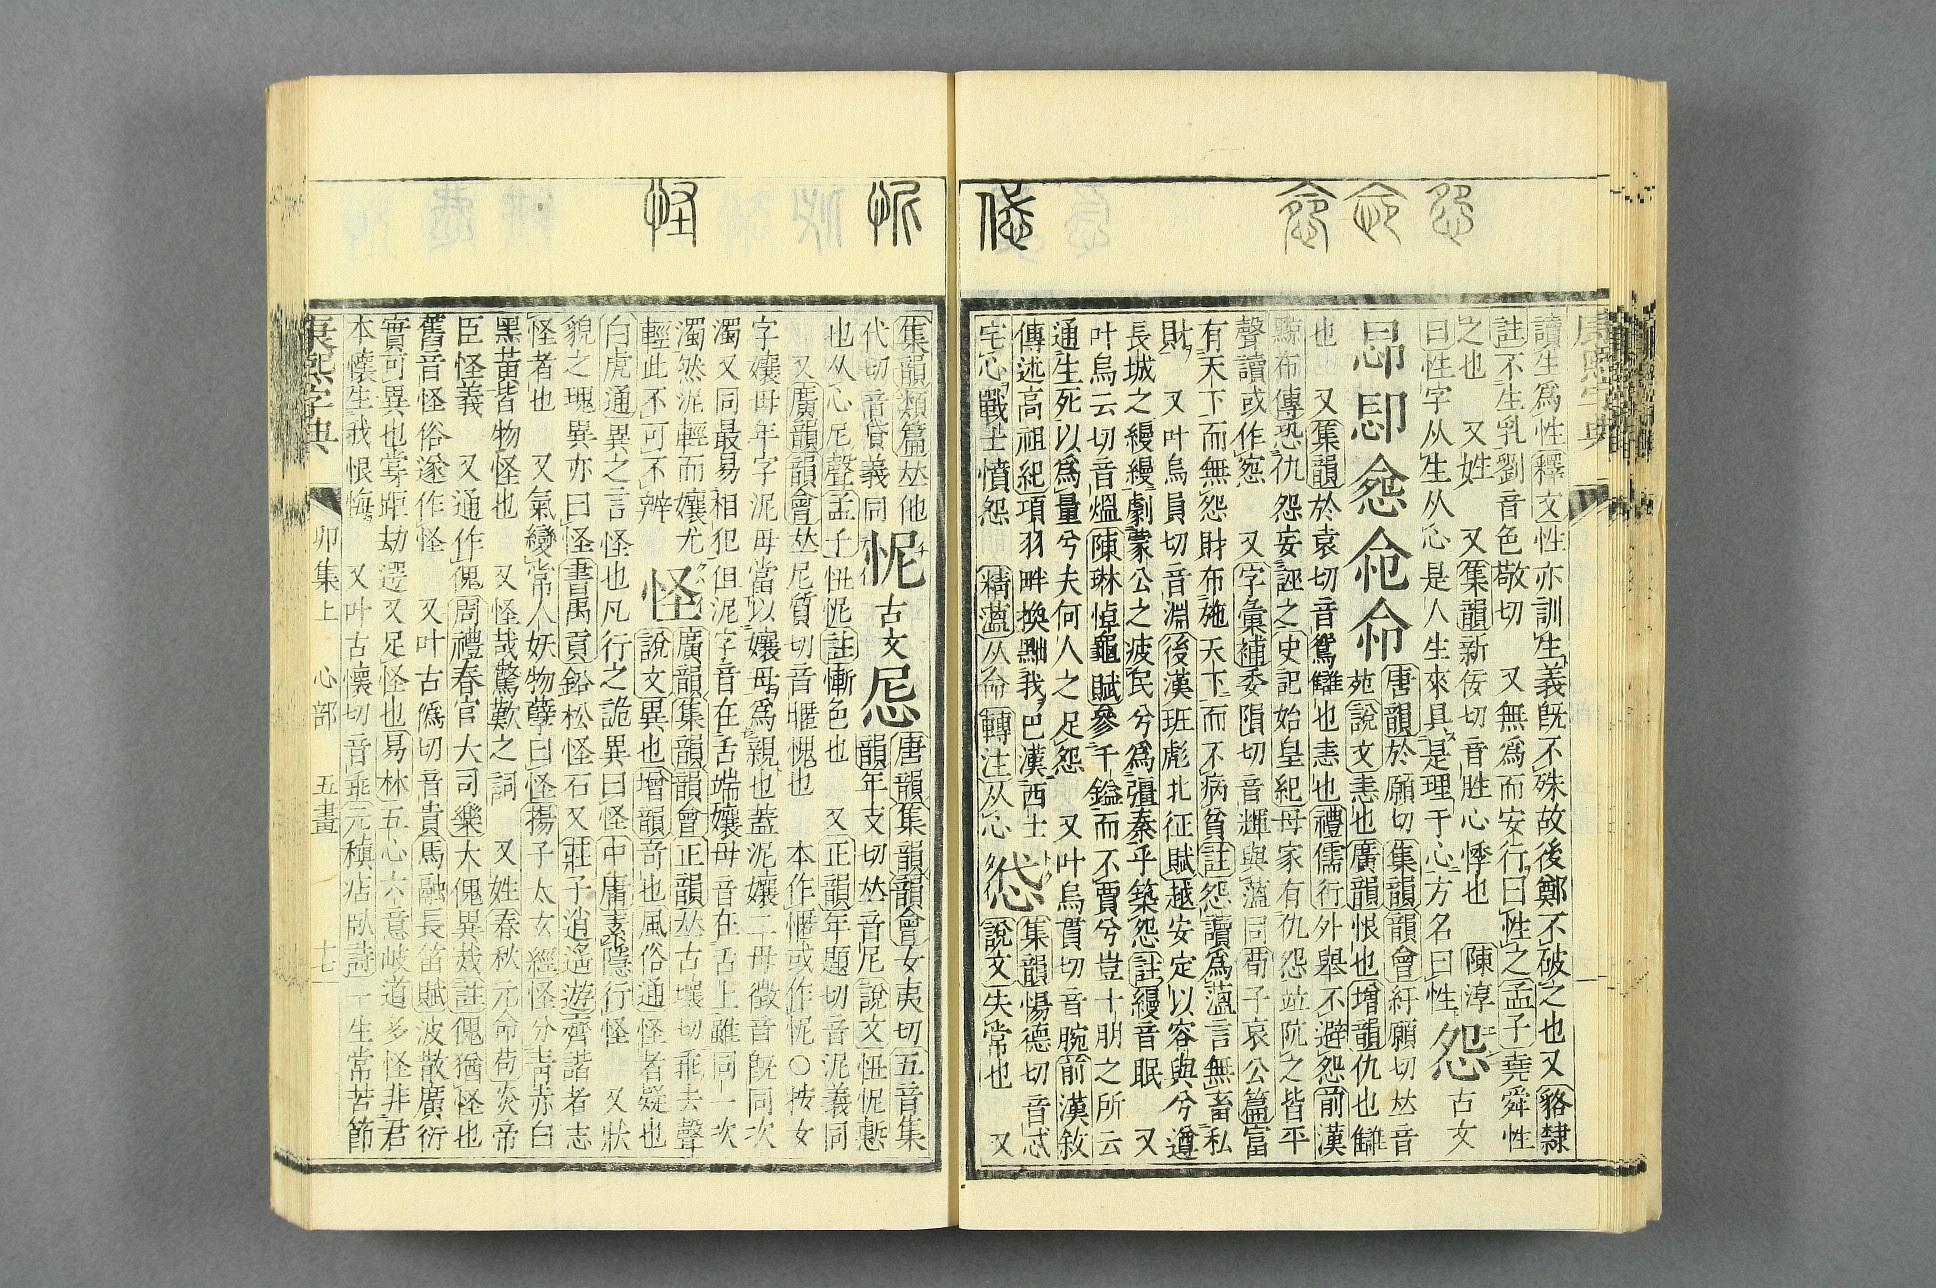 讀生爲性釋文性亦訓生義旣不殊故後鄭不破之也又貉隸
註不生乳劉音色敬切 又無爲而安行曰性之孟子堯舜性
之也 又姓 又集韻新佞切音胜心悸也 陳淳
曰性字从生从心是人生來具是理于心方名曰性 怨 古文
唐韻於願切集韻韻會紆願切𠀤音
苑說文恚也廣韻恨也增韻仇也讎
也 又集韻於袁切音鴛讎也恚也禮儒行外舉不避怨前漢
黥布傳恐仇怨妄誣之史記始皇紀母家有仇怨竝阬之皆平
聲讀或作惌 又字彙補委隕切音輝與薀同荀子哀公篇富
有天下而無怨財布施天下而不病貧註怨讀爲薀言無畜私
財 又叶烏員切音淵後漢班彪北征賦越安定以容與兮遵
長城之縵縵劇蒙公之疲民兮爲彊秦乎築怨註縵音眠 又
叶烏云切音熅陳琳悼龜賦參千鎰而不賈兮豈十朋之所云
通生死以爲量兮夫何人之足怨 又叶烏貫切音腕前漢敘
傳述高祖紀項羽畔換黜我巴漢西土集韻惕德切音忒
宅心戰士憤怨 精薀从命轉注从心 怹 說文失常也 又
集韻類篇𠀤他 怩 古文 𢘽 唐韻集韻韻會女夷切五音集
代切音貸義同 韻年支切𠀤音尼說文忸怩慙
也从心尼聲孟子忸怩註慚色也 又正韻年題切音泥義同
又廣韻韻會𠀤尼質切音暱愧也 本作𢣷或作怩〇按女
字孃母年字泥母當以孃母爲親也蓋泥孃二母徵音旣同次
濁又同最易相犯但泥字音在舌端孃母音在舌上雖同一次
濁然泥輕而孃尤 怪 廣韻集韻韻會正韻𠀤古壞切乖去聲
輕此不可不辨 說文異也增韻奇也風俗通怪者疑也
白虎通異之言怪也凡行之詭異曰怪中庸素隱行怪 又狀
貌之瑰異亦曰怪書禹貢鉛松怪石又莊子逍遙遊齊諧者志
怪者也 又氣變常人妖物孽曰怪揚子太玄經怪分靑赤白
黑黃皆物怪也 又怪哉驚歎之詞 又姓春秋元命苞炎帝
臣怪義 又通作傀周禮春官大司樂大傀異烖註傀猶怪也
舊音怪俗遂作怪 又叶古僞切音貴馬融長笛賦波散廣衍
實可異也掌距劫遻又足怪也易林五心六意岐道多怪非君
本懷生我恨悔 又叶古懷切音乖元稹痁臥詩一生常苦節
康熙字典 卯集上 心部 五畫 十七